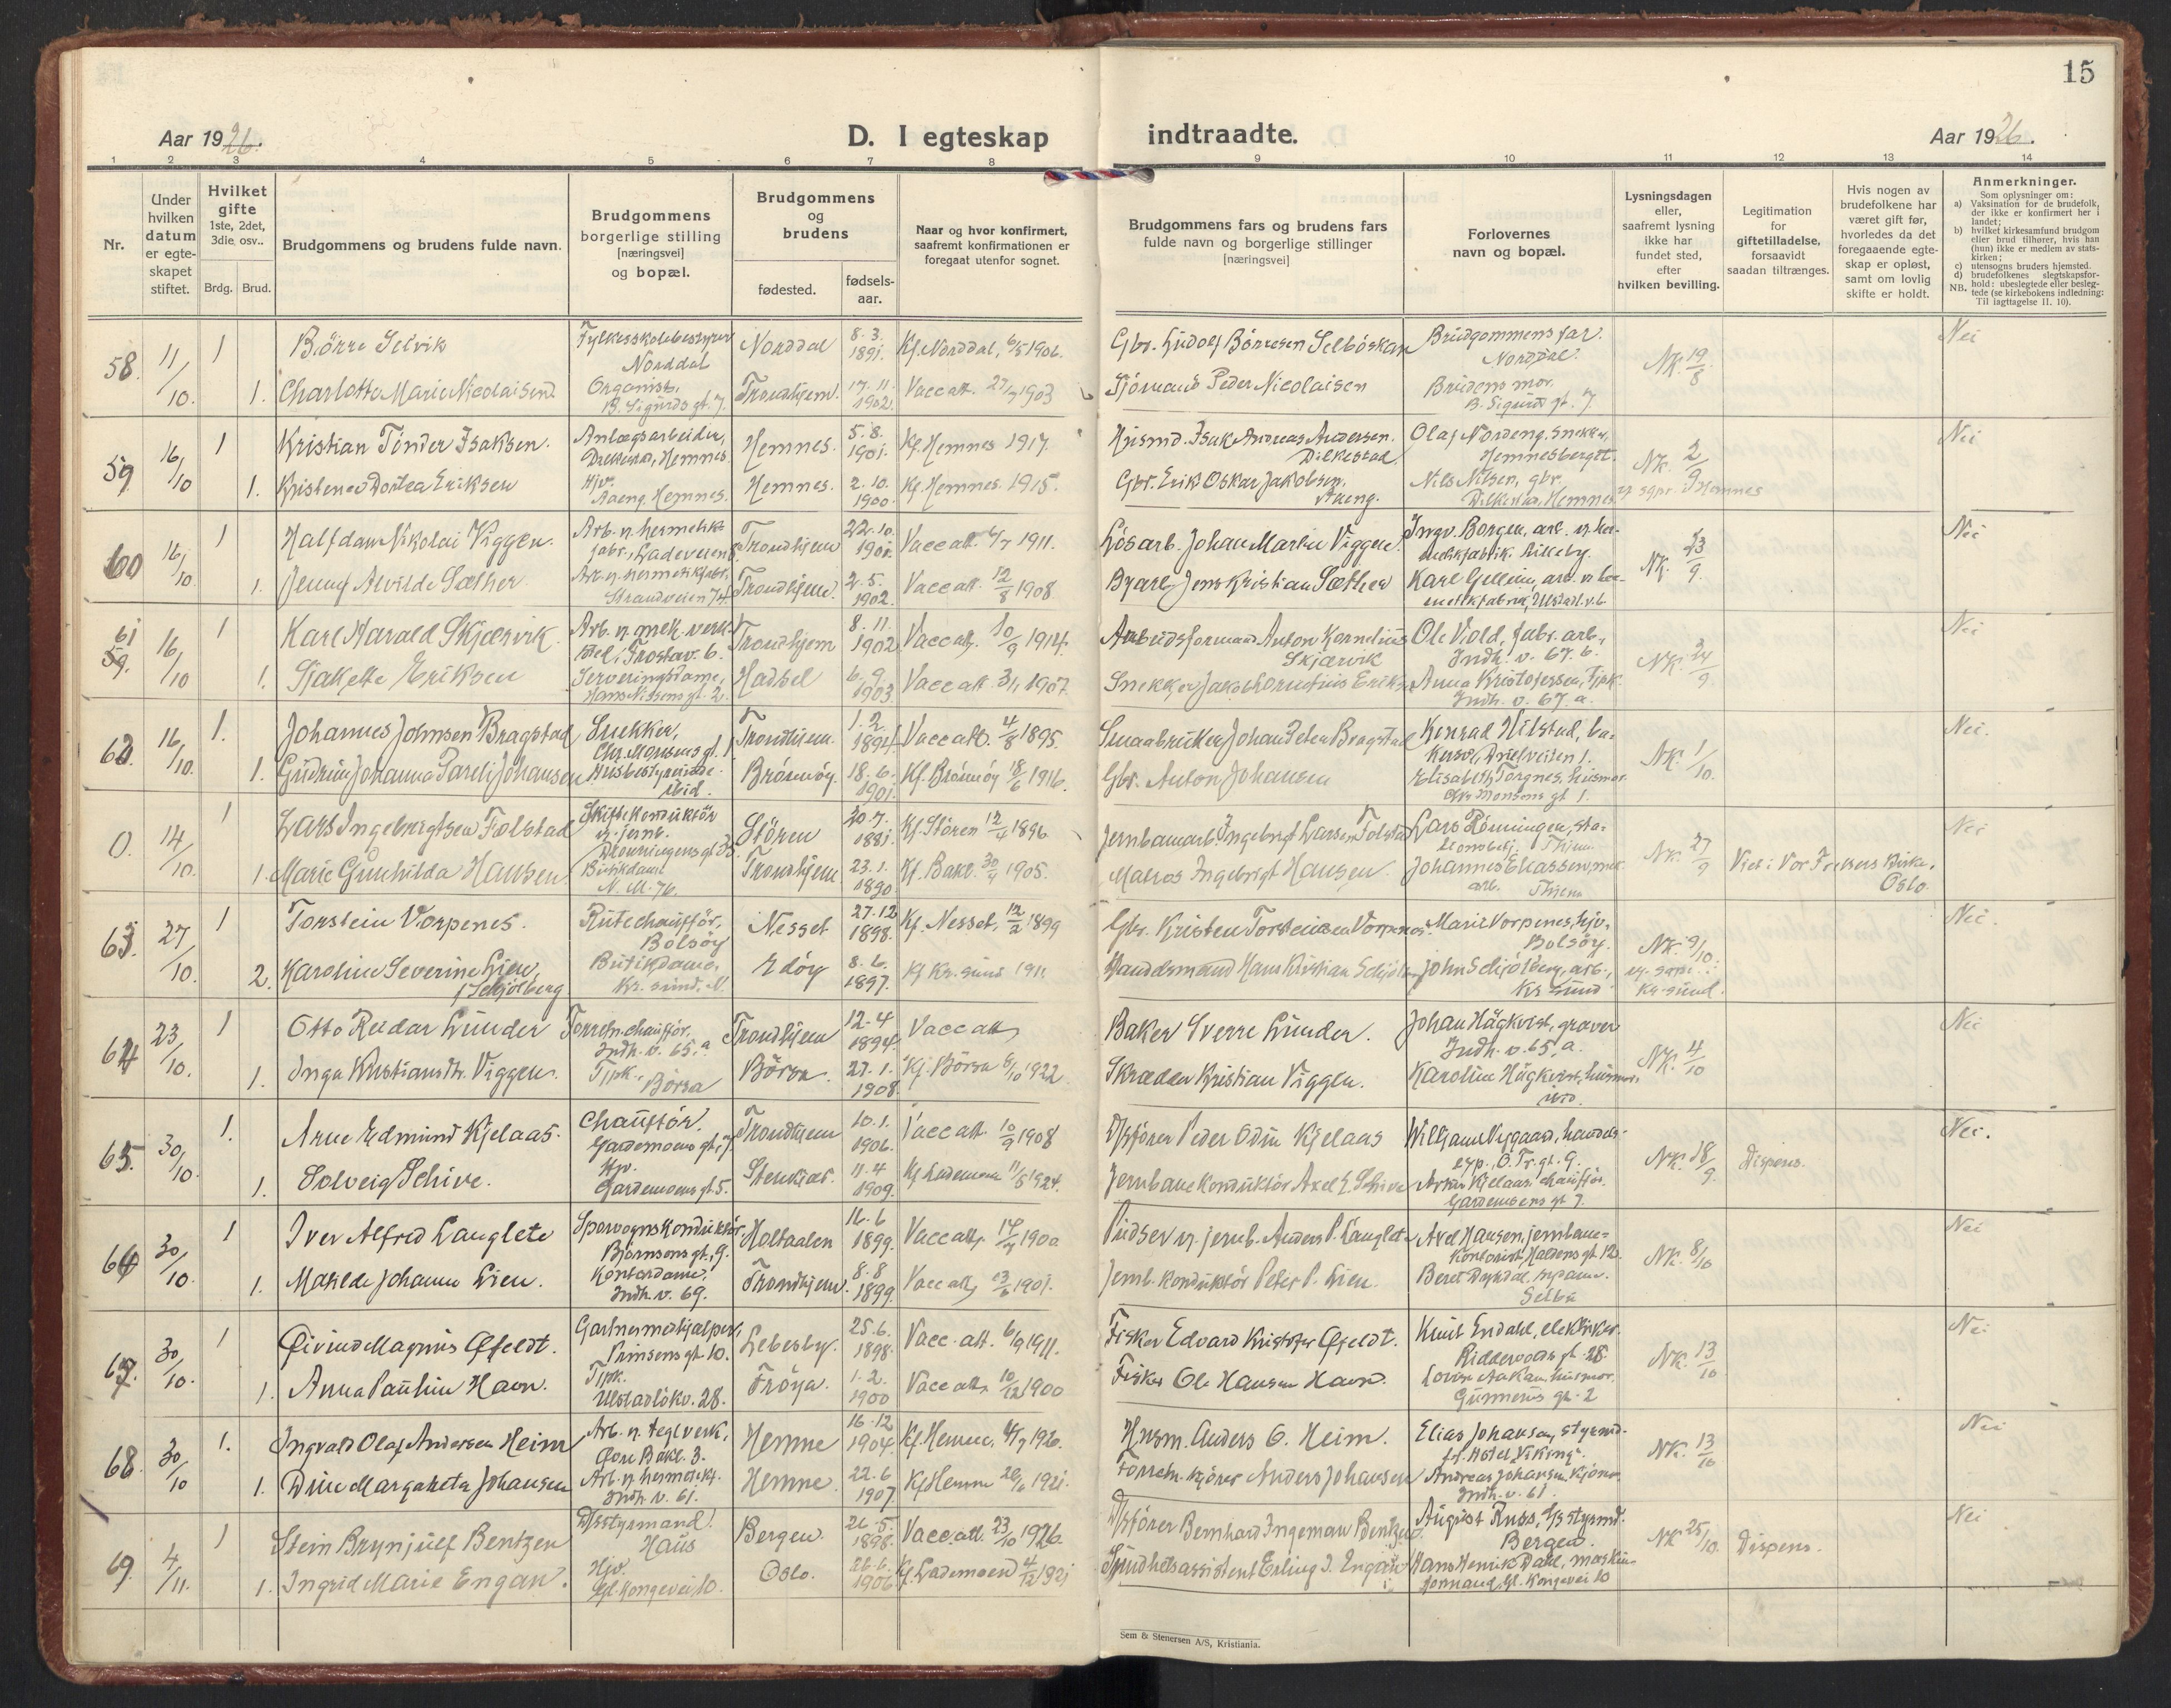 15
Aar 1926.
D. I egteskap
indtraadte.
Aar 1926.
1 2 3 4 5 6 7 8 9 10 11 12 13 14
Nr.
Under hvilken datum er egte- skapet stiftet.
Hvilket gifte 1ste, 2det, 3die, osv..
Brdg. Brud.
Brudgommens og brudens fulde navn.
Brudgommens borgerlige stilling [næringsvei] og bopæl.
Brudgommens og brudens
fødested.
fødsels- aar.
Naar og hvor konfirmert, saafremt konfirmationen er foregaat utenfor sognet.
Brudgommens fars og brudens fars fulde navn og borgerlige stillinger [næringsvei]
Forlovernes navn og bopæl.
Lysningsdagen eller, saafremt lysning ikke har fundet sted, efter hvilken bevilling.
Legitimation for giftetilladelse, forsaavidt saadan tiltrænges.
Hvis nogen av brudefolkene har været gift før, hvorledes da det foregaaende egte- skap er opløst, samt om lovlig skifte er holdt.
Anmerkninger.
Som oplysninger om:
a) Vaksination for de brudefolk, der ikke er konfirmert her i landet;
b) hvilket kirkesamfund brudgom eller brud tilhører, hvis han (hun) ikke er medlem av stats- kirken;
c) utensogns bruders hjemsted.
d) brudefolkenes slegtskapsfor- hold: ubeslegtede eller besleg- tede (se kirkebokens indledning:
NB. Til iagttagelse II. 10).
58. 11/10. 1 Børre Selvik Fylkesskolebestyrer Norddal Norddal 8.3. 1891. Kf. Norddal, 1906. Gbr. Ludolf Børresen Selbóskar Brudgommens far. Norddal. NK. 19/8 Nei
1. Charlotte Marie Nicolaisen Organist, B. Sigurds gt. 7. Trondhjem. 17.11. 1902. Vacc att. 1903 Peder Nicolaisen Brudens mor. B. Sigurds gt. 7
59. 16/10 1 Kristian Tinder Isaksen. Anlægsarbeider, Hemnes. Hemnes. 5.8. 1901. Kf. Hemnes 1917. Isak Andreas Andersen. Dilkestad. Olaf Nordeng, snekker, Hemnesberget. NK. 2/9 Nei
1. Dortea Eriksen Hjv. Hemnes. Hemnes. 2.10. 1900 Kf. Hemnes 1915. Gbr. Erik Oskar Jakobsen, Nils Nilsen, gbr. Hemnes
60 16/10 1 Halfdan Nikolai Viggen. Arb. v. hermetikk fabr., Ladeveien Trondhjem 22.10. 1901. Vacc att. 1911. Løsarb. Johan Martin Viggen. Ingv. Borgen, NK. 23/9. Nei
1. Jenny Alvilde Sæther Arb. v. hermetikfabr. Strandveien 74. Trondhjem. 2.5. 1902. Vacc att. 12/8 1908 Jens Kristian Sæther Karl
61 16/10 1 Karl Harald Skjærvik. Arb. v. mek. verk- sted, Frostav. 6. Trondhjem 8.11. 1902 Vacc att. 10/9 1914. Arbeidsformand Anton Kornelius Skjærvik Ole Vold, fabr. arb., Indh. v. 67. b. NK. 24/9. Nei
1. Eriksen Serveringsdame, Hans Nissens gt. 2. Hadsel 6.9. 1903. Vacc att. 1907. Snekker Anna Kristofersen, Tjpk. Indh. v. 67. a.
62. 16/10. 1. Johannes Johnsen Bragstad Snekker, Chr. Monsens gt. 1 Trondhjem. 1.2. 1894. Vacc att. 4/8 1895. Smaabruker Johan Peter Bragstad Konrad Hilstad, NK. 1/10. Nei.
1. Gudrun Johanna Johansen Husbestyrerinde. ibid. Brønnøy. 18.6. 1901. Kf. Brønnøy 18/6 1916. Gbr. Anton Johansen Elisabeth Torgnes, husmor. Chr. Monsens gt. 1.
0. 14/10. 1 Lars Ingebrigtsen Folstad Skiftekonduktør v. jernb. Støren 20.7. 1881. Kf. Støren 12/4 1896. Jernbanearb. Ingebrigt Larsen Folstad Lars Rønningen, NK. 27/9 Viet i Vor Frelsers Kirke, Oslo. Nei
1. Marie Gunhilda Hansen. Butikdame N. M. 76. Trondhjem. 23.1. 1890. Kf. Bakl. 30/4 1905. Ingebrigt Hansen. Johannes Eliassen, arb. Thjem
63. 27/10. 1 Torstein Vorpenes. Rutechauffør, Bolsøy Nesset 27.12 1898. Kf. Nesset, 1899 Gbr. Kristen Torsteinsen Vorpenes. Marit Vorpenes, hjv. Bolsøy. NK. 9/10. Nei.
2. Karoline Severine Lien, f. Schjølberg Butikdame, Kr. sund. N. Edøy 8.6. 1897. Kf. Kr. sund 1911 Handelsmand Hans Kristian John Schjølberg, arb., Kr. sund Kr. sund.
64 23/10. 1 Otto Reidar Lunder chauffør, Indh. v. 65. a Trondhjem 12.4 1894. Vacc att. Baker Sverre Lunder. Johan Hägkvist, graver Indh. v. 65, a. NK. 4/10 Nei
1. Inga Kristiansdtr. Viggen. Tjpk. Børsa Børsa. 27.1. 1908. Kf. Børsa 1922. Skrædder Kristian Viggen. Karoline Hägkvist, husmor. ibid.
65. 30/10. 1. Arne Edmund Kjelaas. Chauffør. Gardemoens gt. 7. Trondhjem 10.1. 1906. Vacc att. 10/9 1908 Peder Odin Kjelaas NK. 18/9. Dispens. Nei.
1. Solveig Schive. Hjv. Gardemoens gt. 5. Steinkjær. 11.4 1909. Kf. Lademoen 1924. Jernbanekonduktør Axel E. Schive Kjelaas chauffør. Gardemoens gt. 7.
66 30/10. 1 Iver Alfred Langlete Sporvognskonduktør, Bjørnsons gt. 9. Holtaalen 16.6 1899. Vacc att. 1900 Pudser v. jernb. Anders P. Langlete Axel Hansen, jernbane- kontorist, NK. 8/10 Nei
1. Matilde Johanne Lien. Kontordame. Indh. v. 69. Trondhjem. 8.8 1899. Vacc att. 1901. Jernb. konduktør Peter P. Lien. Beret Selbu
67. 30/10. 1 Øivind Magnus Øfeldt. Gartnermedhjælper, Prinsens gt. 10. Lebesby. 25.6. 1898. Vacc. att. 1911. Fisker Edvard Kristofer Øfeldt. Knut Endahl, elektriker. NK. 13/10 Nei
1. Anna Pauline Havn. Tjpk. Ulstadløkv. 28. Frøya. 1.2. 1900 Vacc att. 10/12 1900 Fisker Ole Hansen Havn. husmor. Gunnerus gt. 2
68. 30/10 1. Ingvald Olaf Andersen Heim Arb. v. teglverk, Øvre Bakl. 3. Hemne 16.12 1904. Kf. Hemne, 1920. Husm. Anders O. Heim. Elias Johansen, styrmd. NK. 13/10 Nei
1. Dine Margareta Johansen Arb. v. hermetikf. Indh. v. 61. Hemne. 22.6 1907. Kf. Hemne 1921. Anders Johansen Andreas Johansen, kjører, Indh. v. 61.
69. 4/11. 1 Stein Brynjulf Bentzen D/sstyrmand. Haus Bergen. 26.5. 1898. Vacc. att. 23/10 1926. D/sfører Bernhard Ingeman Bentzen. August Russ, D/s styrmd. Bergen. NK 25/10. Dispens. Nei
1. Ingrid Marie Engan. Hjv. Gl. Kongevei 10. Oslo. 26.6. 1906. Kf. Lademoen 4/12 1921 Sundhetsassistent Erling I. Engan Hans Henrik Dahl, maskin- formand, Gl. Kongevei 10
Sem & Stenersen A/S, Kristiania.